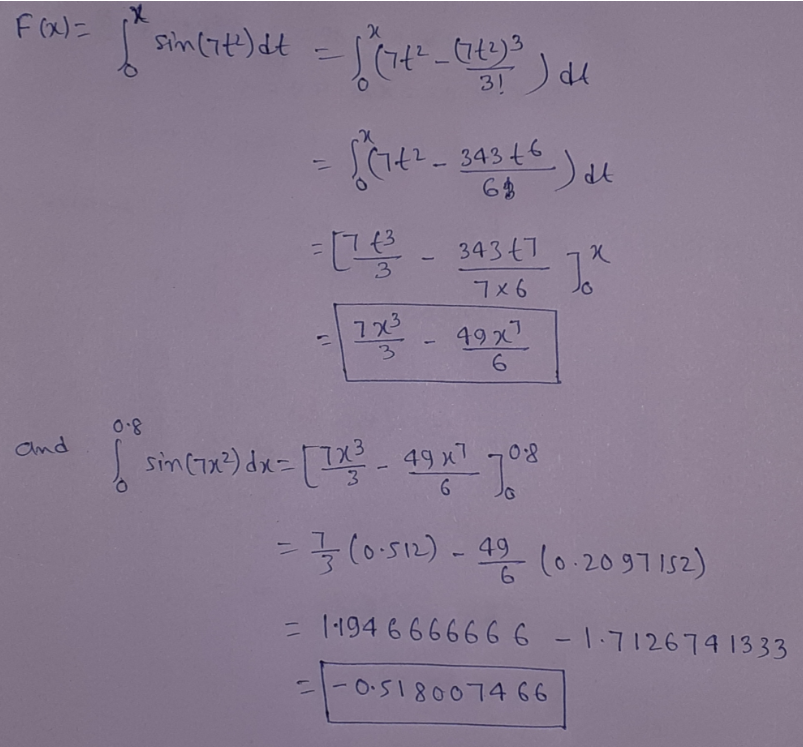 F(x) = ∫₀ˣ sin(7t²)dt = ∫₀ˣ (7t² - (7t²)³/3!) dt
= ∫₀ˣ (7t² - 343t⁶/6) dt
= [7t³/3 - 343t7/7×6]₀ˣ
= 7x³/3 - 49x⁷/6
and ∫₀^0.8 sin(7x²)dx = [7x³/3 - 49x⁷/6]₀^0.8
= 7/3 (0.512) - 49/6 (0.2097152)
= 1.1946666666 - 1.7126741333
= -0.518007466